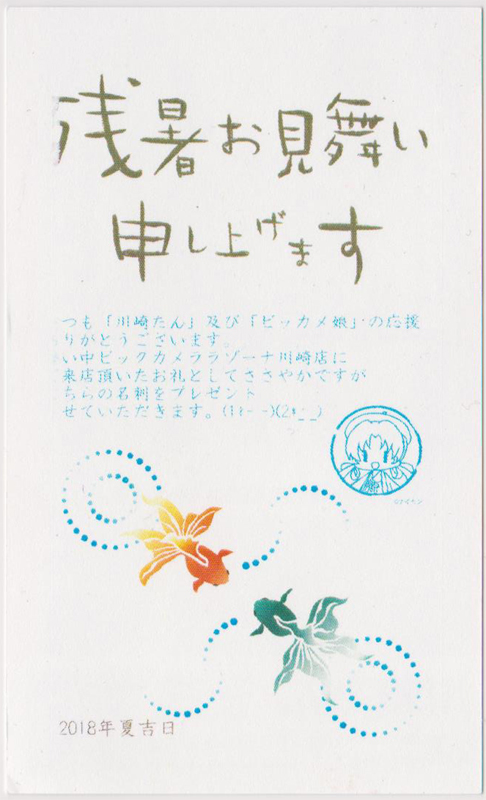 残暑お見舞い
申し上げます
つも「川崎たん」及び「ビッカメ娘」の応援
りがとうございます。
い中ビックカメララゾーナ川崎店に
来店頂いたお礼としてささやかですが
ちらの名刺をプレゼント
せていただきます。(1*- -)(2*_ _)
2018年夏吉日